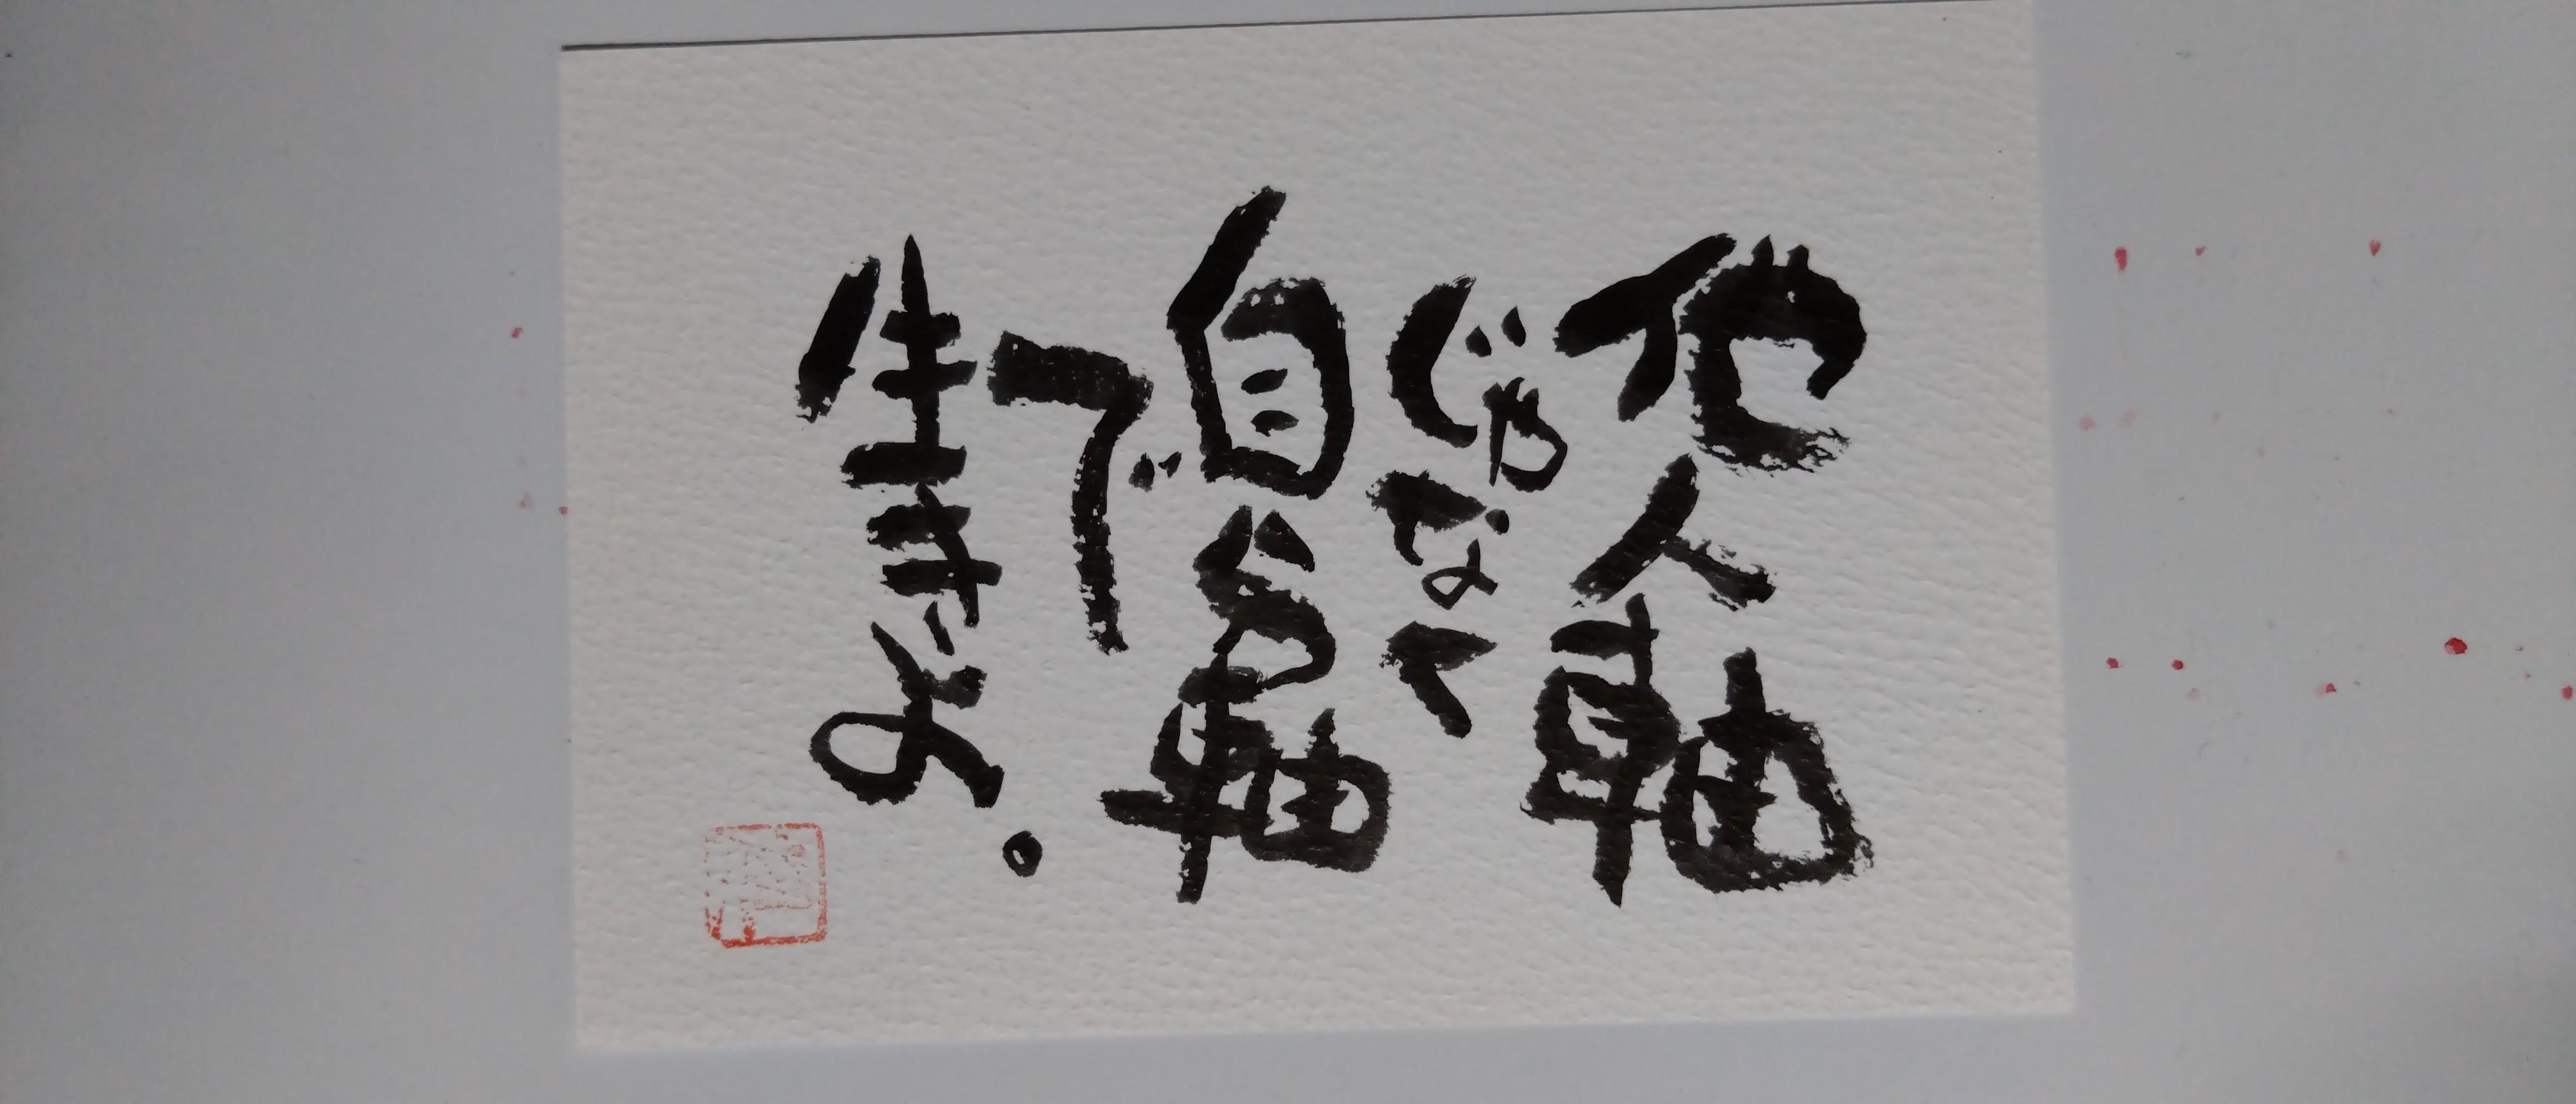 他人軸
じゃなくて
自分軸
で
生きよ。